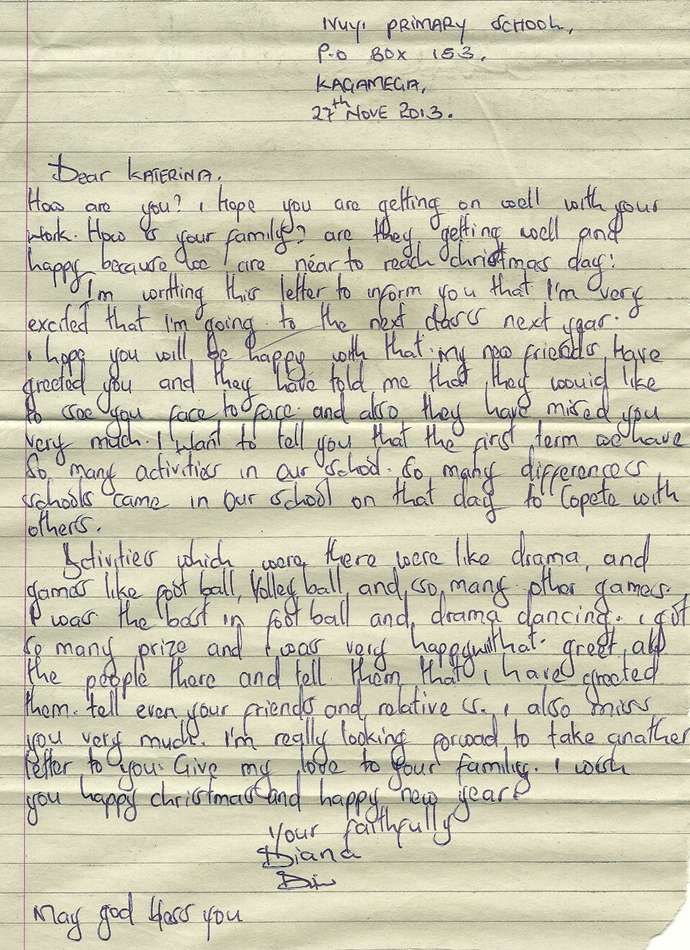 Ivuyi PRIMARY SCHOOL,
P.O BOX 153,
KAGAMEGA,
27th NOVE 2013.
Dear KATERINA.
How are you? i hope you are getting on well with your
work. How is your family? are they getting well and
happy because we are near to reach christmas day!
I'm writting this letter to inform you that I'm very
excited that I'm going to the next class next year.
i hope you will be happy with that. my new friends have
greeted you and they have told me that they would like
to see you face to face. and also they have mised you
very much. I want to tell you that the first term we have
so many activities in our school. so many differences
schools came in our school on that day to Copete with
others.
Activities which were there were like drama, and
games like foot ball, Volley ball, and so many other games.
I was the best in foot ball and drama dancing. i got
so many prize and i was very happy with that. greet all
the people there and tell them that i have greeted
them. tell even your friends and relative s. i also miss
you very much. I'm really looking forwad to take another
letter to you. Give my love to your family. I wish
you happy christmas and happy new year.
Your faithfully
Diana
May god bless you